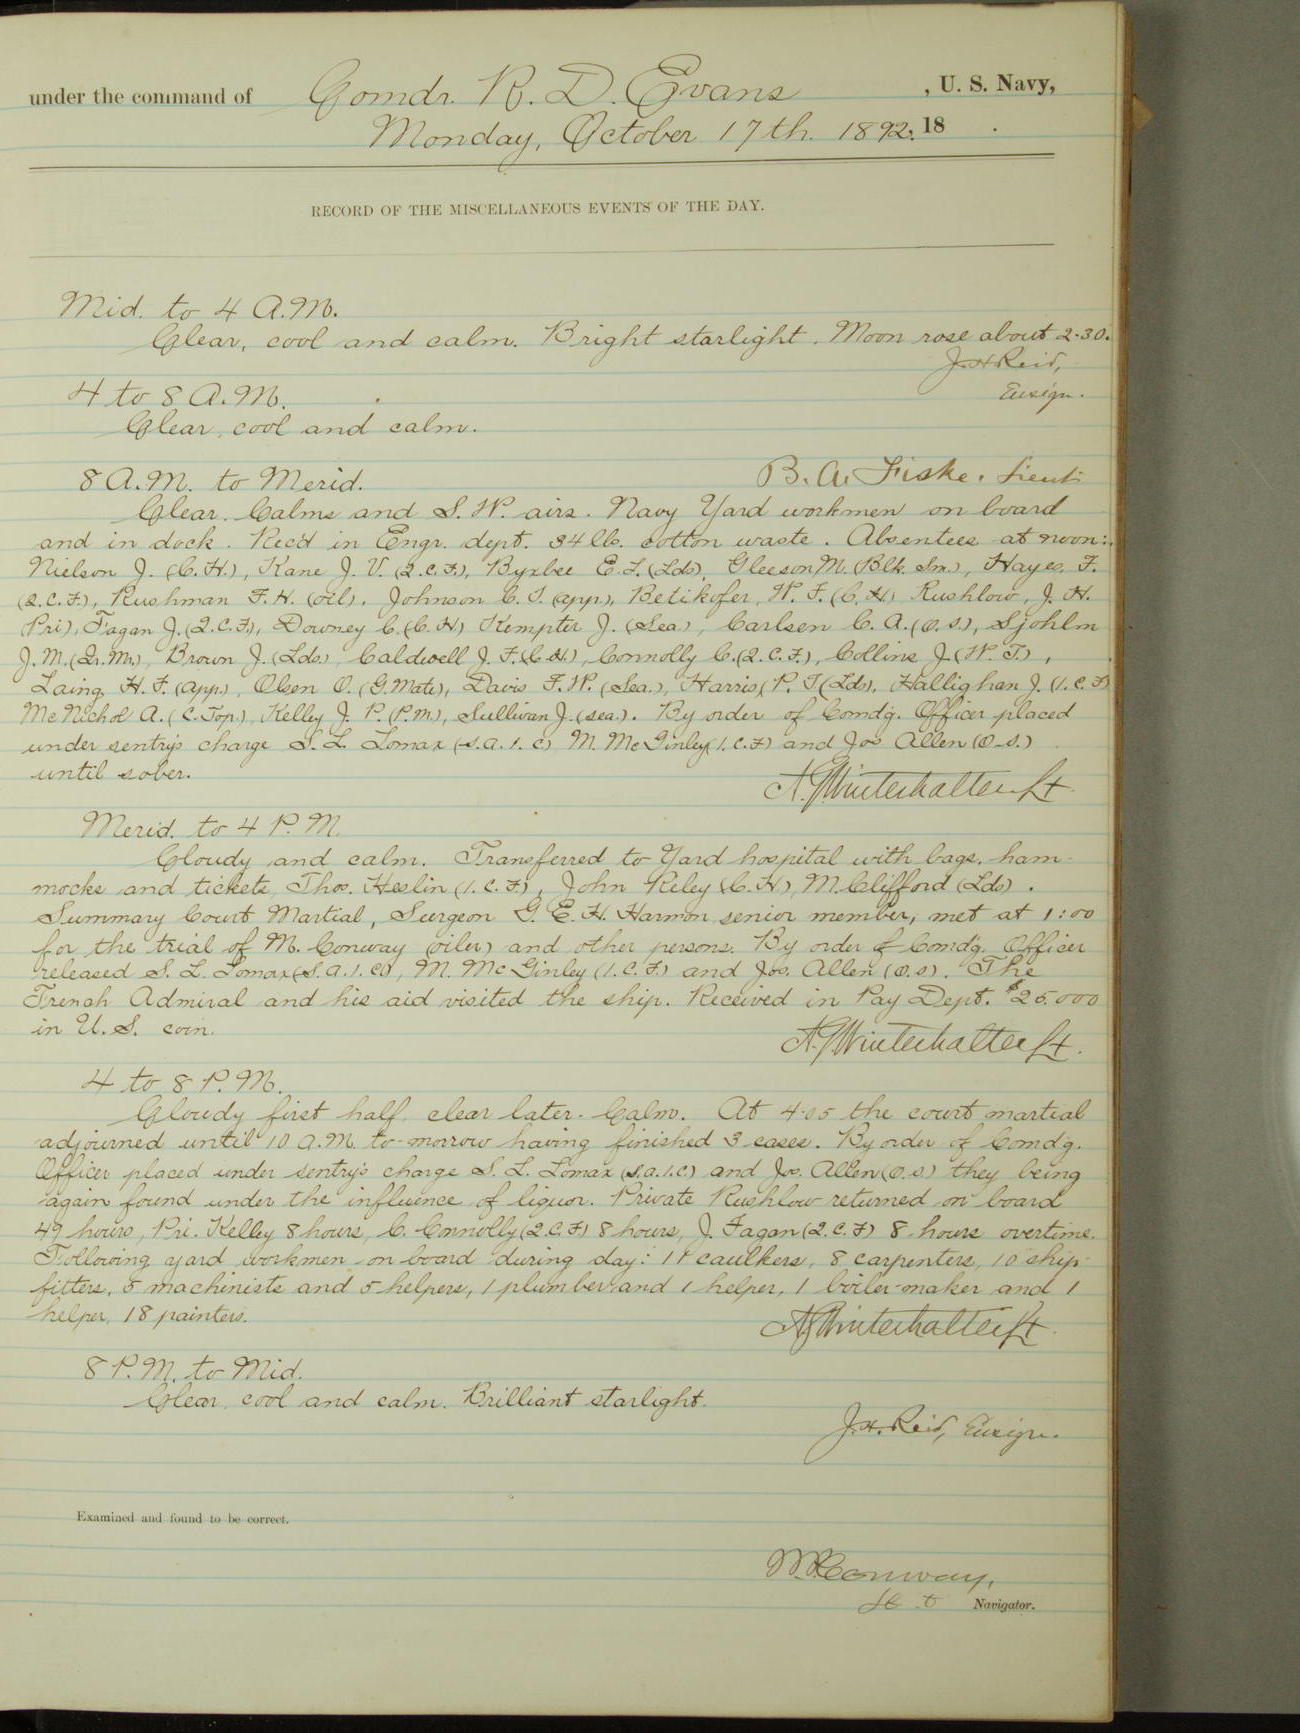 under the command of Comdr. R. D. Evans, U. S. Navy,
Monday, October 17th. 1892. 18 .
RECORD OF THE MISCELLANEOUS EVENTS OF THE DAY.
Mid. to 4 A.M.
Clear, cool and calm. Bright starlight. Moon rose about 2-30.
J.H. Reid,
Ensign.
4 to 8 A.M.
Clear, cool and calm.
B. A. Fiske. Lieut
8 A.M. to Merid.
Clear. Calms and S. W. airs. Navy Yard workmen on board
and in dock. Rec'd in Engr. dept. 84 lb. cotton waste. Absentees at noon:
Nielson J. (C. H.), Kane J. V. (2. C. F.), Byxbee E. L. (Lds), Gleeson M. (Blk. Sm.), Hayes. F.
(2. C. F.), Rushman F. H. (oil). Johnson C. S. (app), Betikofer, W. F. (C. H) Rushlow, J. H.
(Pri), Fagan J. (2. C. F.), Downey C. (C. H) Kempter J. (Sea), Carlsen C. A. (O. S), Sjohlm
J. M. (Qr. Mr.), Brown J. (Lds), Caldwell J. F. (C. H.), Connolly C. (2. C. F.), Collins J. (W. T.),
Laing H. F. (App.), Olsen O. (G. Mate), Davis F. W. (Sea.), Harris, P. J (Lds), Hallighan J. (1. C. F)
McNichol A. (C. Top.), Kelley J. P. (P. M.), Sullivan J. (sea.). By order of Comd'g. Officer placed
under sentry's charge S. L. Lomax (S. a. 1. C) M. McGinley (1. C. F) and Jos. Allen (O. S.)
until sober.
A. G. Winterhalter Lt
Merid. to 4 P. M.
Cloudy and calm. Transferred to Yard hospital with bags, ham-
mocks and tickets, Thos. Heslin (1. C. F), John Reley (C. H), M. Clifford (Lds).
Summary Court Martial, Surgeon G. E. H. Harmon senior member, met at 1:00
for the trial of M. Conway (oiler) and other persons. By order of Comd'g. Officer
released S. L. Lomax (S. a. 1. C), M. McGinley (1. C. F.) and Jos. Allen (O. S). The
French Admiral and his aid visited the ship. Received in Pay Dept. $25.000
in U. S. coin.
A. G. Winterhalter Lt.
4 to 8 P. M.
Cloudy first half, clear later. Calm. At 4-05 the court martial
adjourned until 10 A.M. to-morrow having finished 3 cases. By order of Comdg.
Officer placed under sentry's charge S. L. Lomax (S. a. 1. C) and Jos. Allen (O. S) they being
again found under the influence of liquor. Private Rushlow returned on board
49 hours, Pri. Kelley 8 hours, C. Connolly (2. C. F) 8 hours, J. Fagan (2. C. F) 8 hours overtime.
Following yard workmen on board during day: 11 caulkers, 8 carpenters, 10 ship-
fitters, 5 machinists and 5 helpers, 1 plumber and 1 helper, 1 boiler-maker and 1
helper, 18 painters.
A. G. Winterhalter Lt.
8 P. M. to Mid.
Clear, cool and calm. Brilliant starlight.
J. H. Reid, Ensign.
Examined and found to be correct.
Conway,
Navigator.